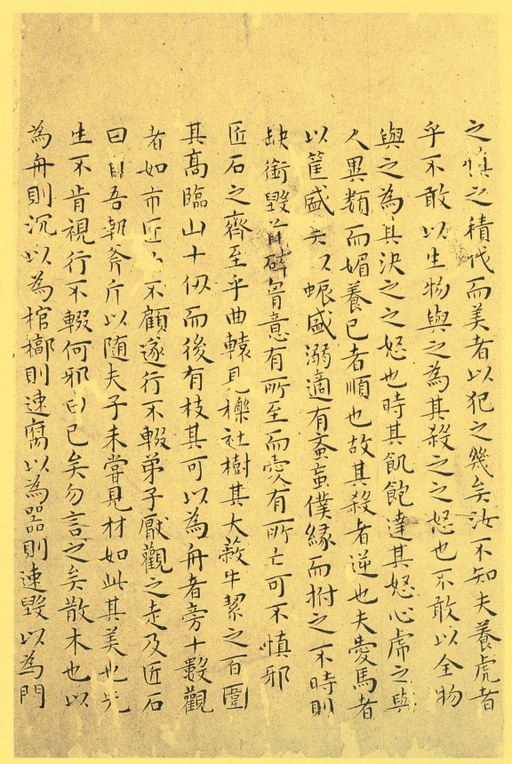 之慎之積伐而美者以犯之幾矣汝不知夫養虎者
乎不敢以生物與之為其殺之之怒也不敢以全物
與之為其決之之怒也時其飢飽達其怒心虎之與
人異類而媚養己者順也故其殺者逆也夫愛馬者
以筐盛矢以蜄盛溺適有蚉䖟僕緣而拊之不時則
缺銜毀首碎胷意有所至而愛有所亡可不慎邪
匠石之齊至乎曲轅見櫟社樹其大蔽牛絜之百圍
其高臨山十仞而後有枝其可以為舟者旁十數觀
者如市匠不顧遂行不輟弟子厭觀之走及匠石
曰自吾執斧斤以随夫子未嘗見材如此其美也先
生不肯視行不輟何邪曰已矣勿言之矣散木也以
為舟則沉以為棺槨則速腐以為器則速毀以為門